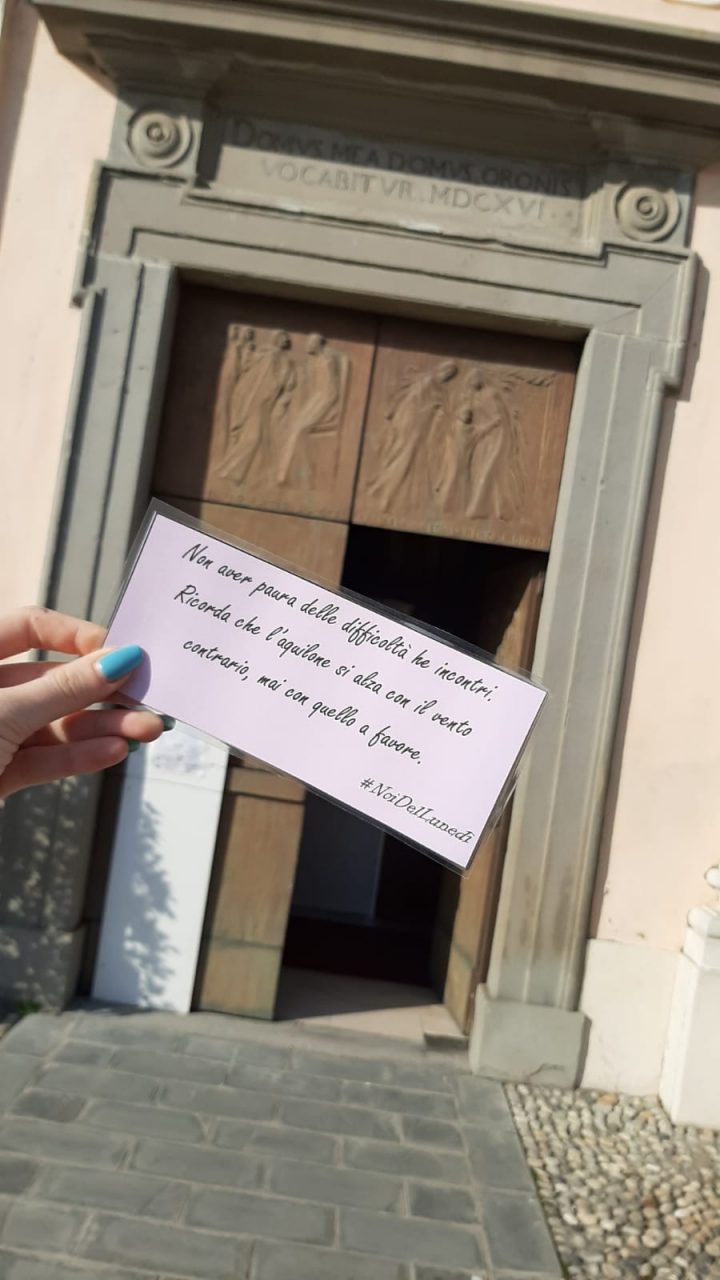 DOMVS MEA DOMVS ORONIS
VOCABITVR. MDCXVI.
Non aver paura delle difficoltà he incontri.
Ricorda che l'aquilone si alza con il vento
contrario, mai con quello a favore.
#NoiDelLunedì